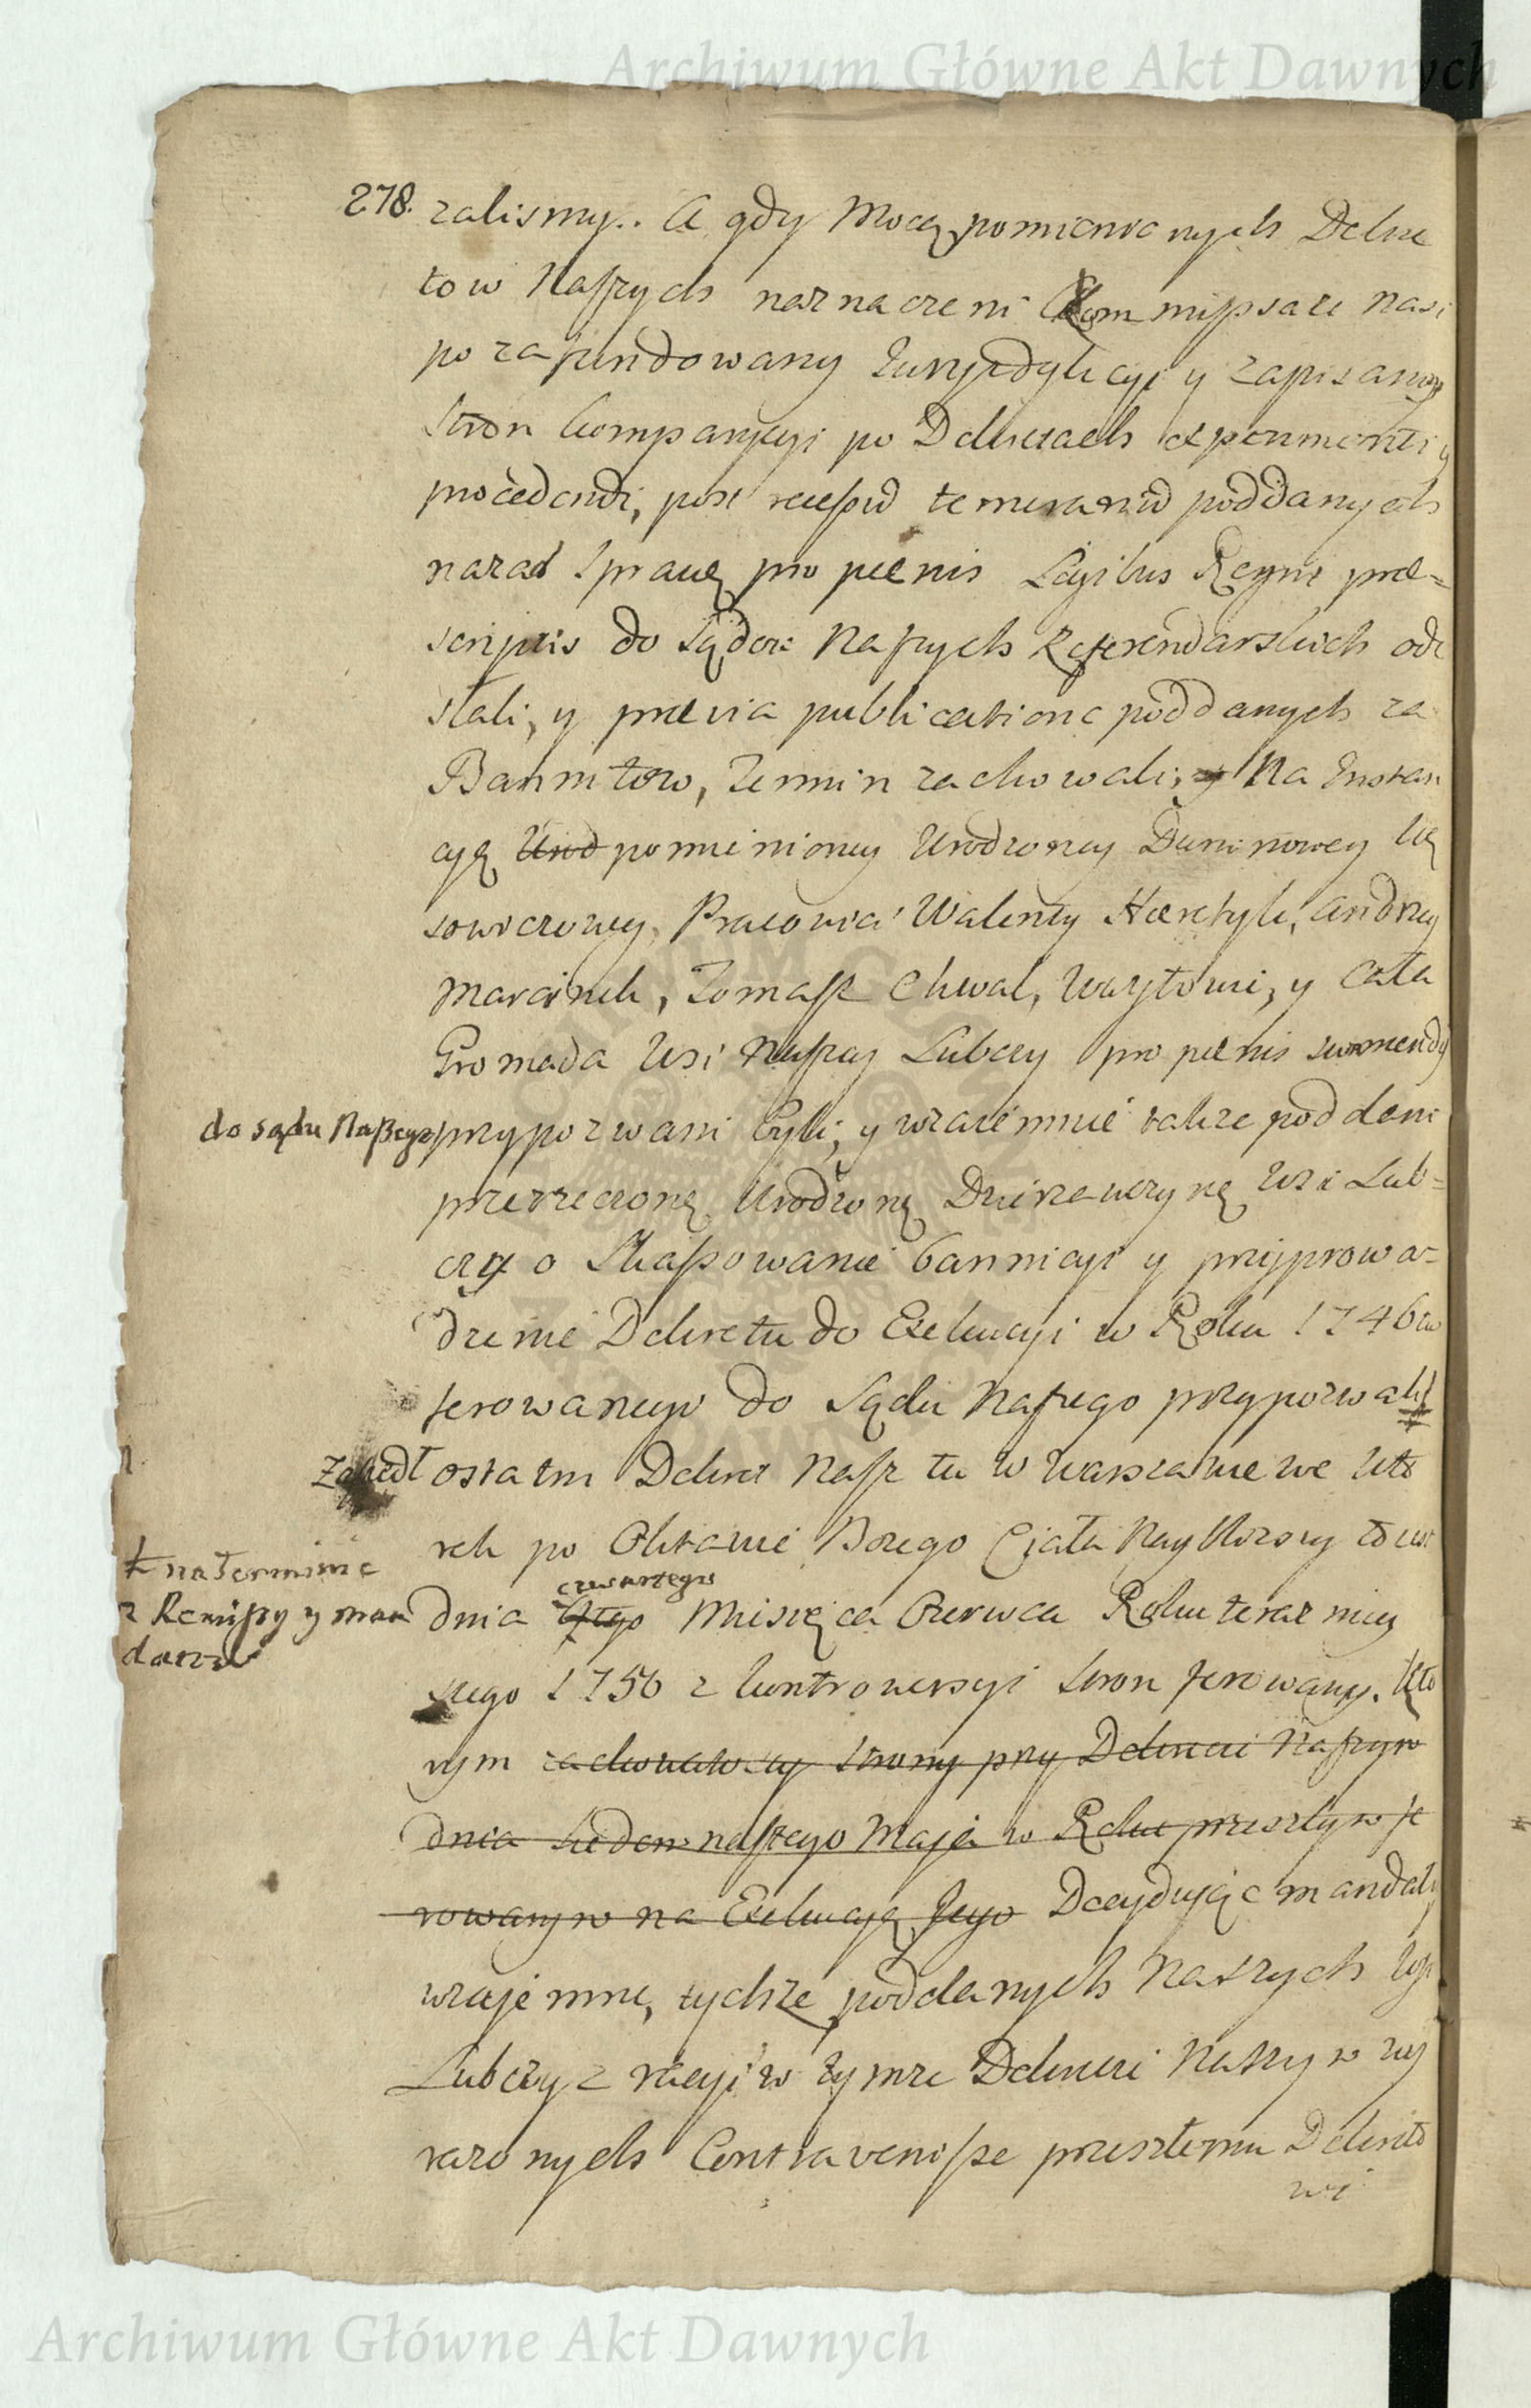 Archiwum Główne Akt Dawnych
278. zalismy. A gdy Mocą pomienionych Dekre
tow Naszych naznaczeni Kommissarze nasi
po zafundowany Jurysdykcyi y zapisany
stron Comparycyi po Dekretach experimenti
procedendi, post recessum poddanych
nazad sprawę pro paenis Legibus Regni prae=
scriptis do sądow Naszych Referendarskich ode
słali, y praevia publicatione poddanych za
Bannitow, Termin zachowali, Na Instan
cyą Urod pomienioney Urodzoney Duninowey Wą
sowiczowey, Pracowici Walenty Andrzey
Marcinek, Tomasz Chwał, Woytowi, y cała
Gromada Wsi Naszey Lubczy pro paenis
do sądu Naszego przypozwani byli, y wzaiemnie także poddani
przerzeczoną Urodzoną Dzierzawczynę Wsi Lub=
czy o Skassowanie bannicyi y przyprowa=
dzenie Dekretu do Exekucyi w Roku 1746
ferowanego do Sądu Naszego przypozwali
Zaszedł ostatni Dekret Nasz tu w Warszawie we Wto
rek po Oktawie Bożego Ciała Naybliższy to iest
ł na terminie
z Remissy y man
datów
czwartego
dnia 4tego Miesiąca Czerwca Roku terazniey
szego 1756 z kontrowersyi stron ferowany. Kto
rym zachowawszy strony przy Dekrecie Naszym
dnia Siedemnastego Maja w Roku przeszłym fe
rowanym na Exekucyą Jego Decydując mandaty
wzajemne, tychże poddanych Naszych Wsi
Lubczy z racyi w tymże Dekrecie Naszym wy
razonych Contravenisse przeszłemu Dekreto
wi
Archiwum Główne Akt Dawnych